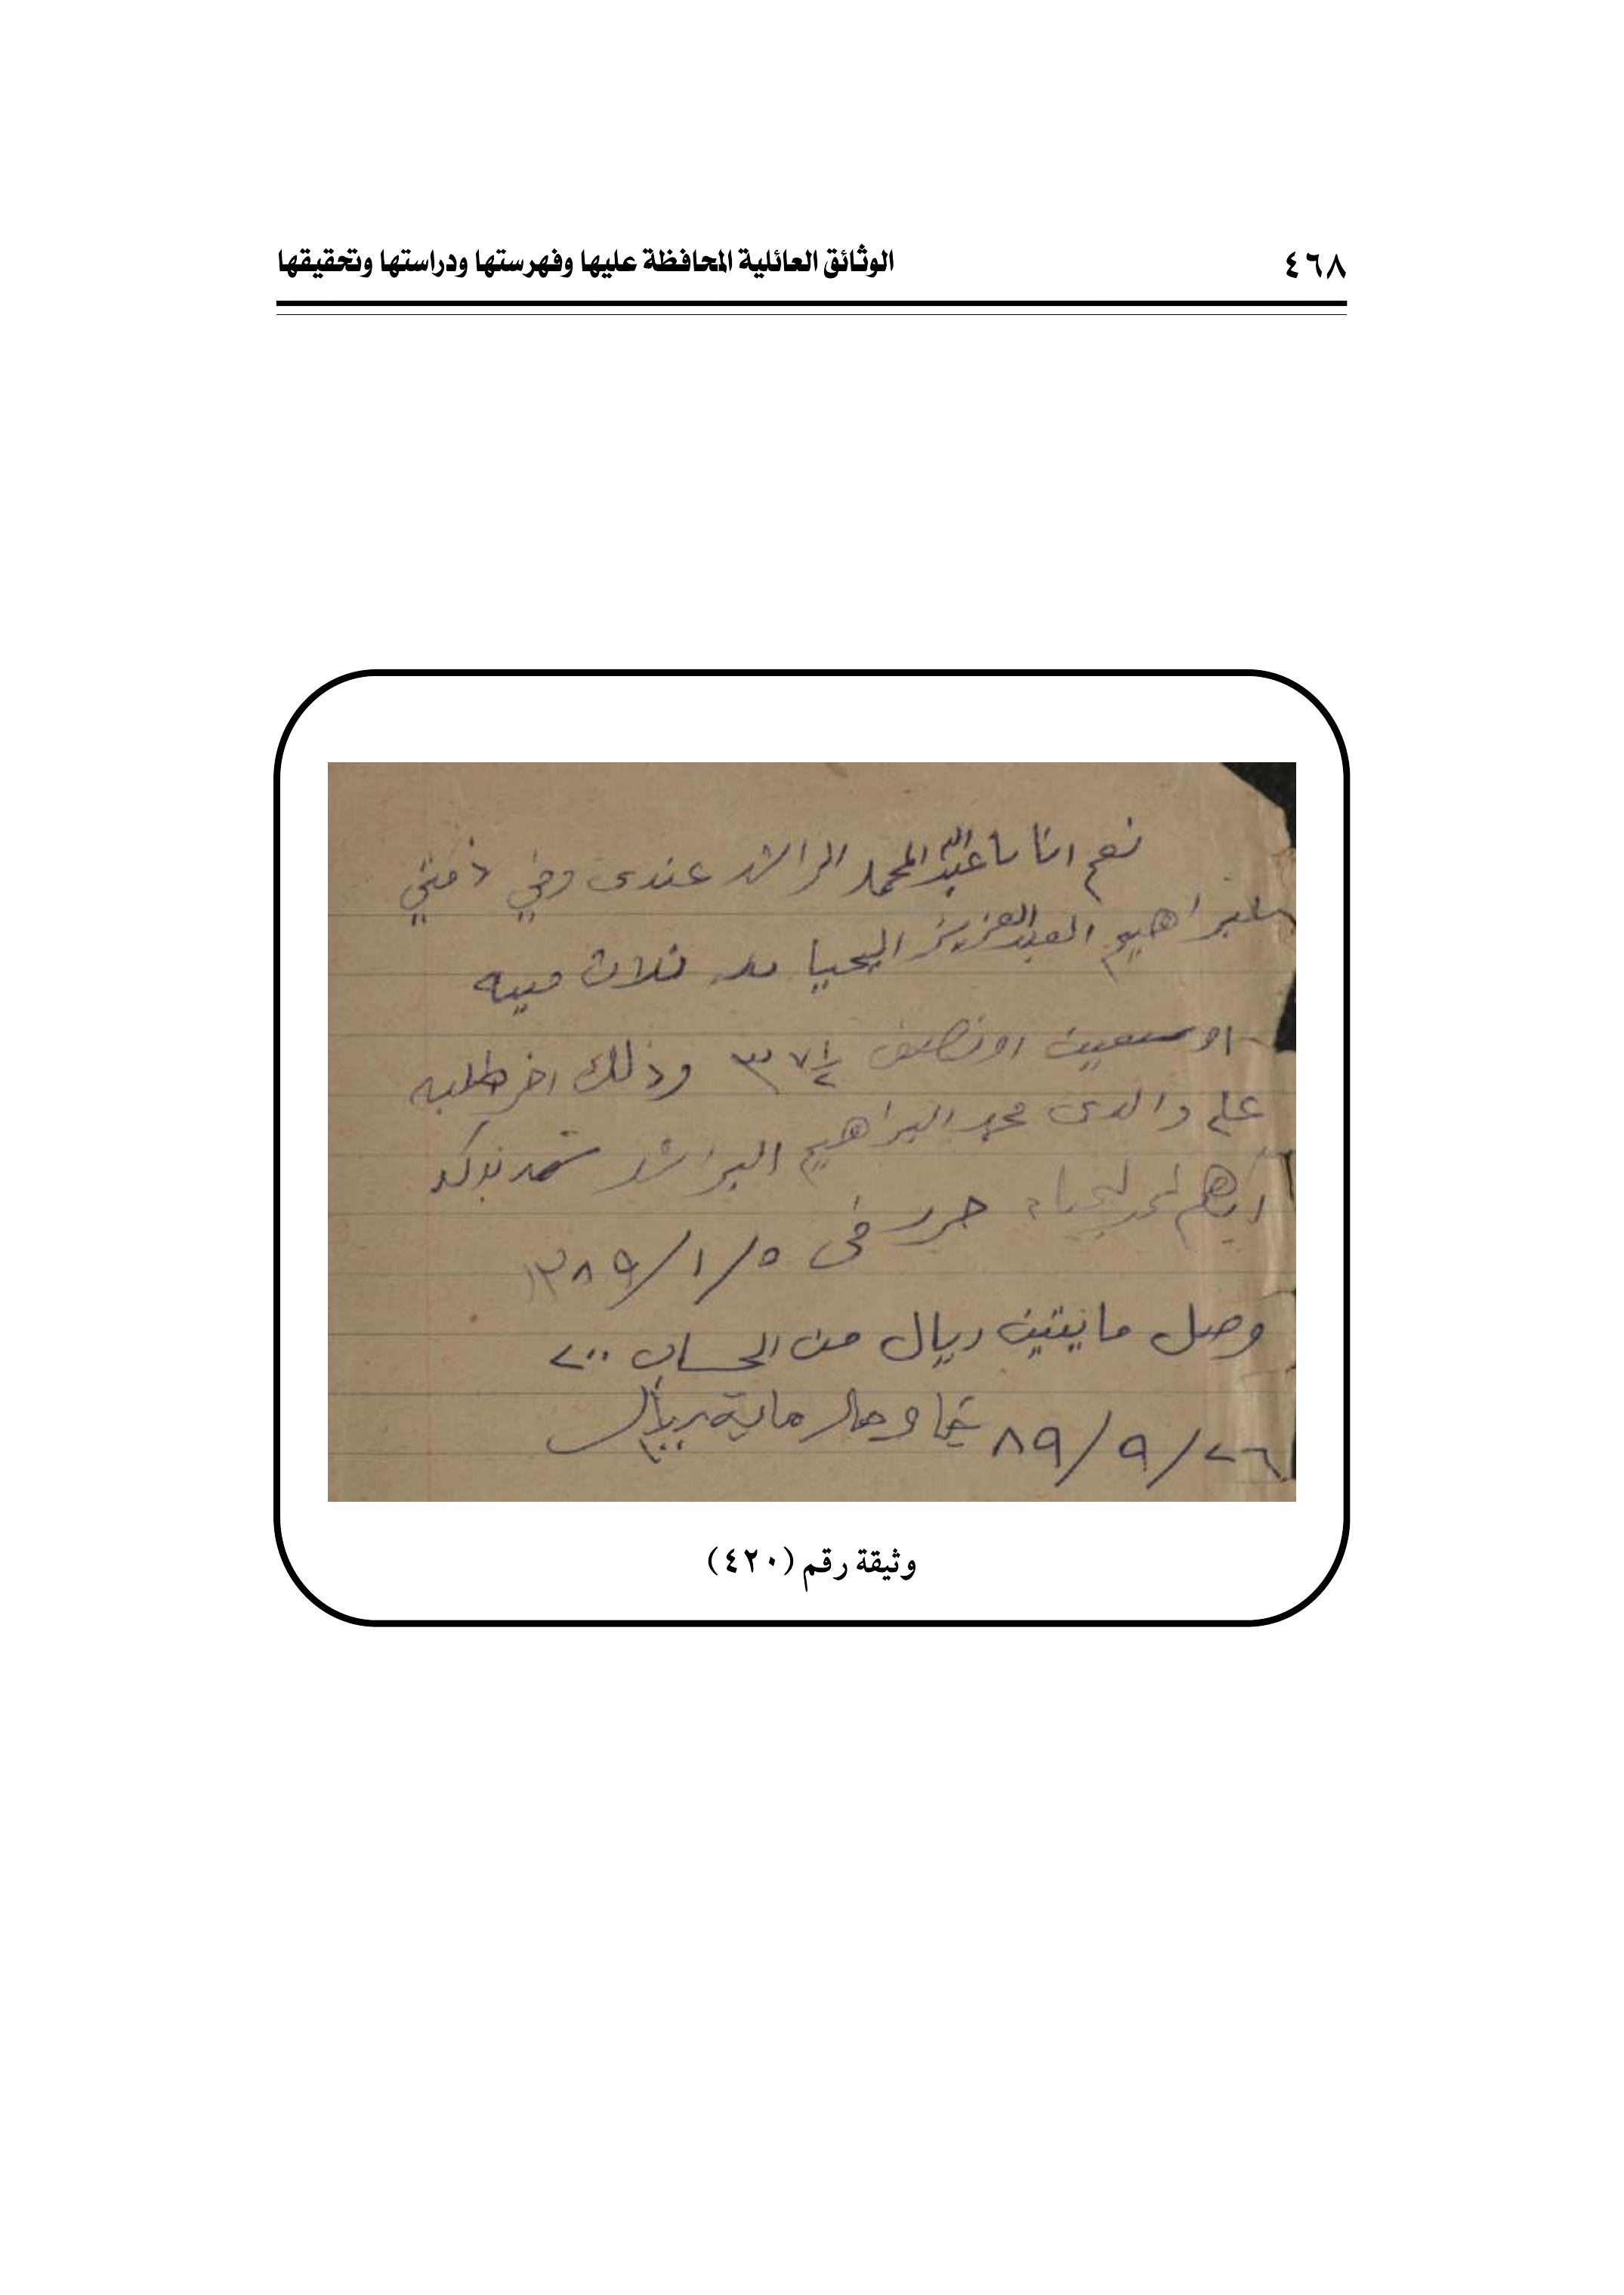 ٤٦٨
الوثائق العائلية المحافظة عليها وفهرستها ودراستها وتحقيقها
نعم انا عبدالله المحمد الراشد عندى وفي ذمتي
لبراهيم العبدالعزيز اليحيا ثلاث مييه
اوسبعين اونصف ١/٢ ٣٧ وذلك اخر طلبه
على والدى محمد البراهيم الراشد شهد بذلك
حرر فى ١٣٨٩/١/٥
وصل مايتين ريال من الحساب ٢٠٠
٨٩/٩/٢٦ ماية ريال ١٠٠
وثيقة رقم (٤٢٠)